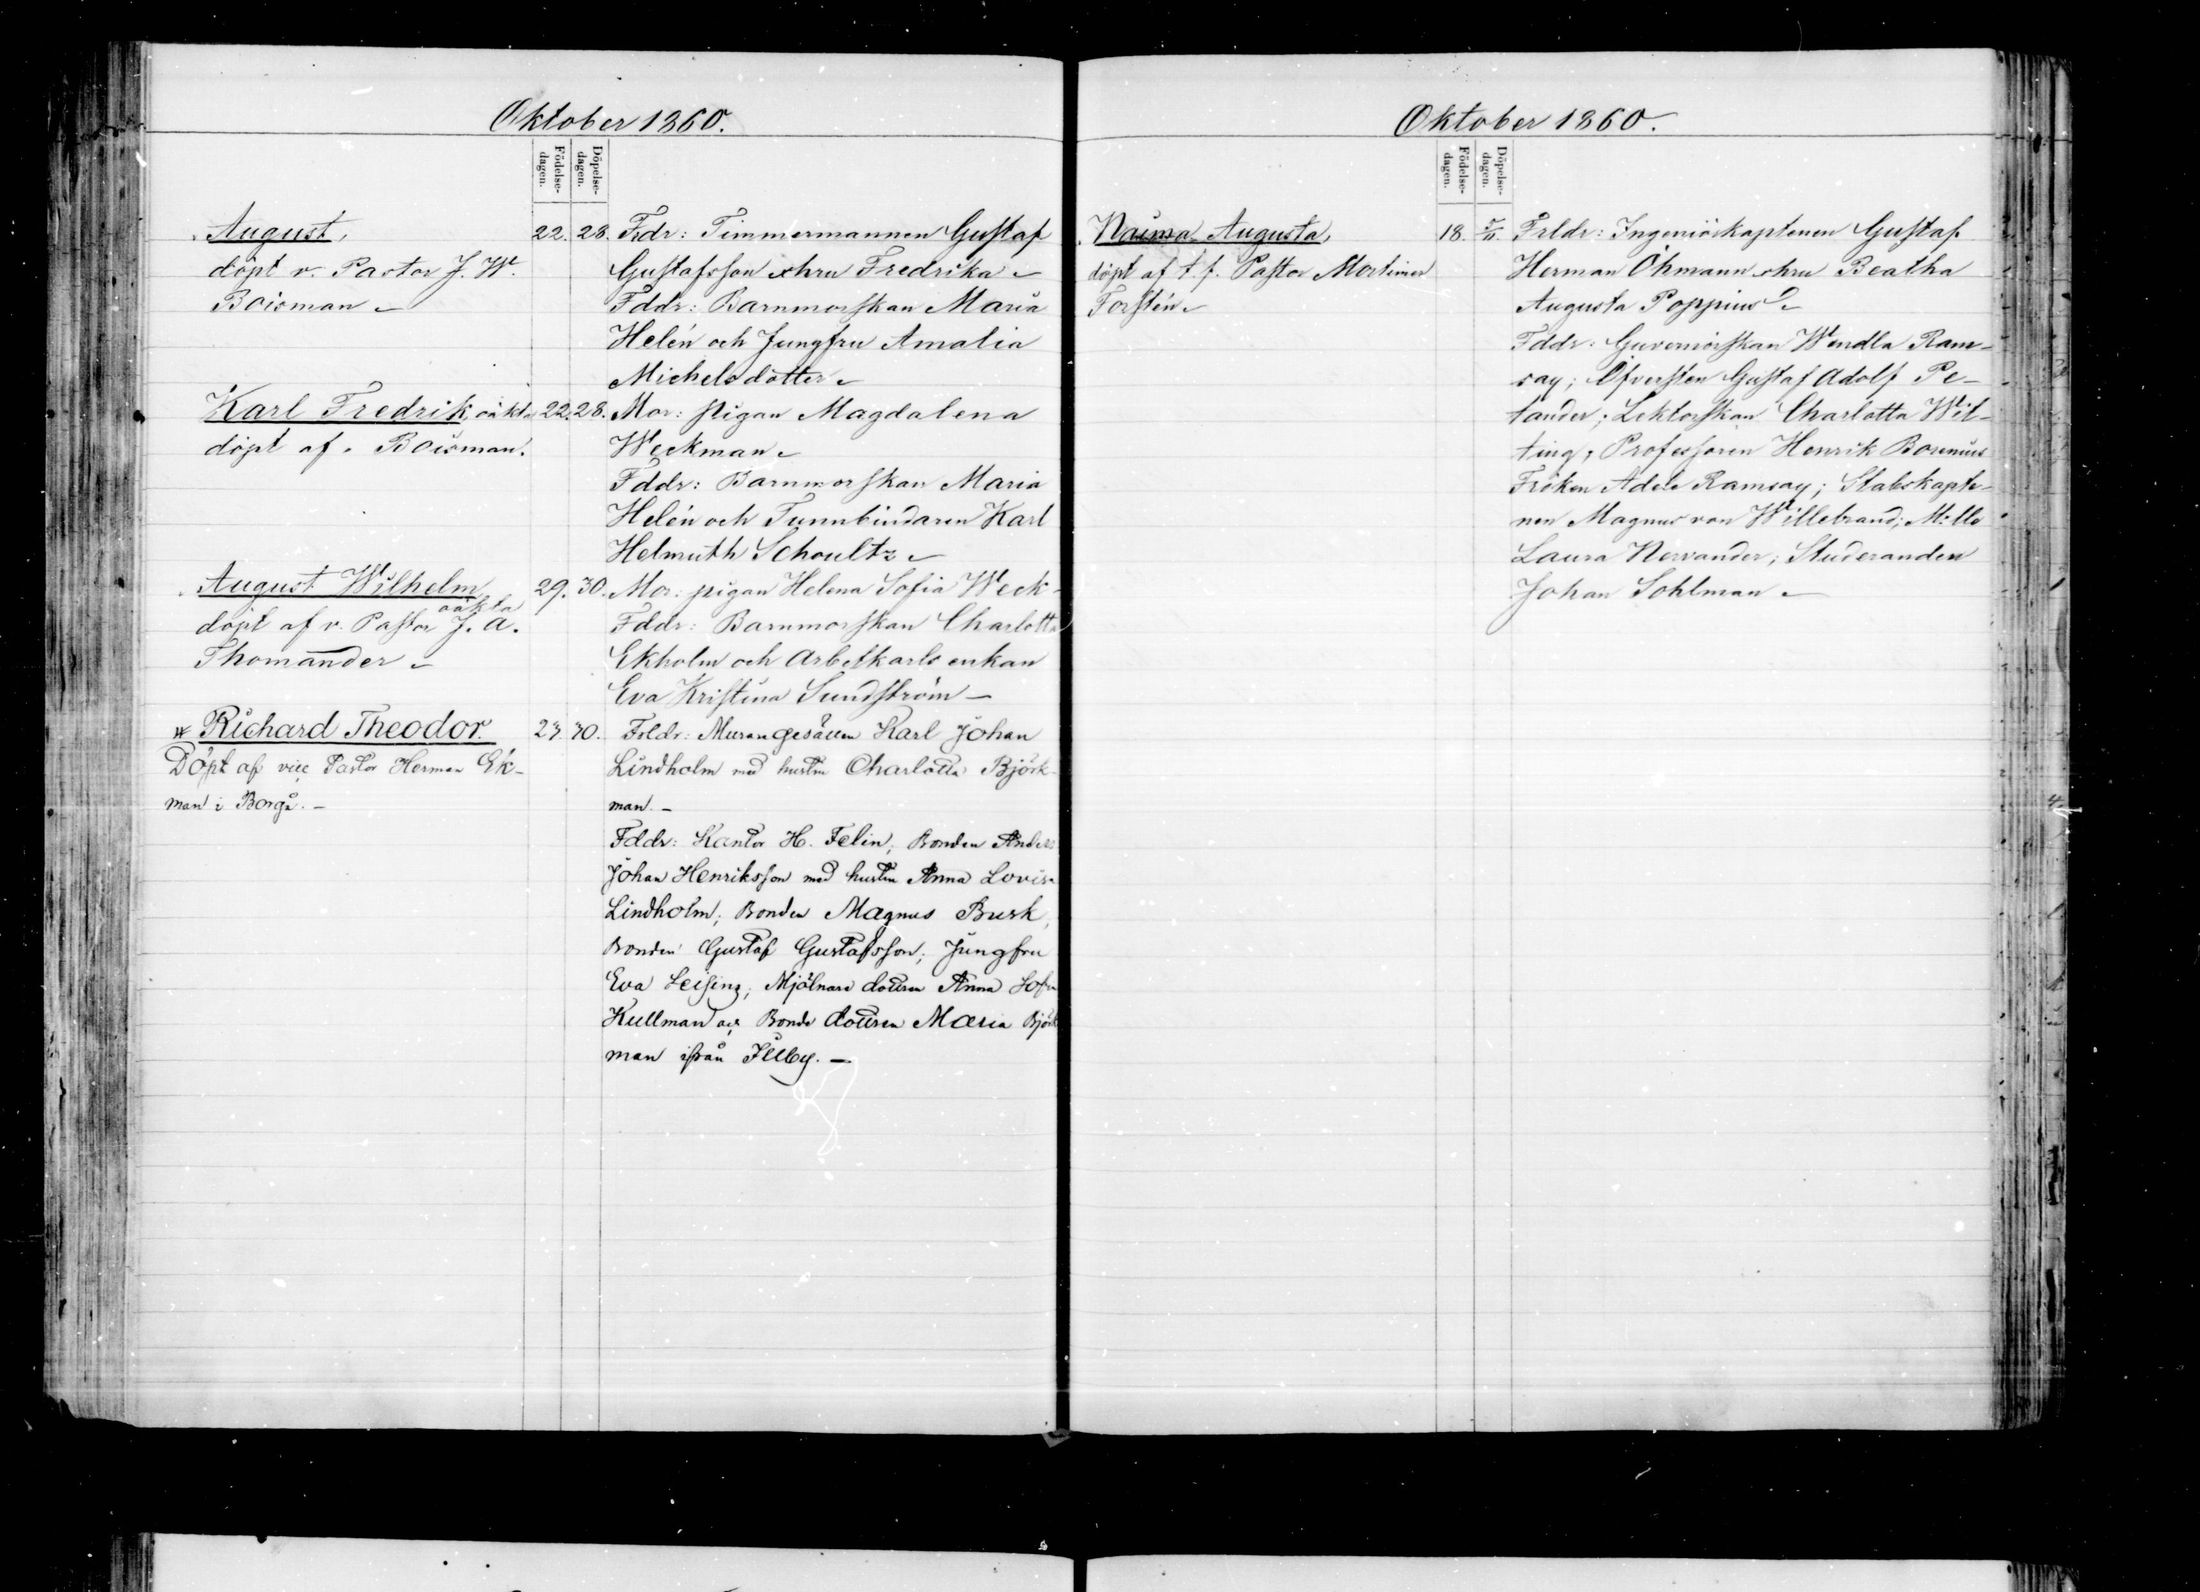 Oktober 1860.
Födelse-
dagen.
Döpelse-
dagen.
August,
döpt v. Pastor J. W.
Boisman
22. 28.
Frdr: Timmermannen Gustaf
Gustafsson o hru Fredrika
Fddr: Barnmorskan Maria
Helén och Jungfru Amalia
Michelsdotter
Karl Fredrik, oäkta
döpt af " Boisman.
22. 28.
Mor: pigan Magdalena
Weckman
Fddr: Barnmorskan Maria
Helén och Tunnbindaren Karl
Helmuth Schoultz
August Wilhelm
oäkta
döpt af v. Pastor J. A.
Thomander
29. 30.
Mor: pigan Helena Sofia Weck
Fddr: Barnmorskan Charlotta
Ekholm och Arbetskarls enkan
Eva Kristina Sundström
Richard Theodor.
Döpt af vice Pastor Herman Ek-
man i Borgå.
23. 30.
Frldr: Muraregesällen Karl Johan
Lindholm med hustru Charlotta Björk-
man.
Fddr: Kantor H. Felin; Bonden Anders
Johan Henriksson med hustru Anna Lovisa
Lindholm; Bonden Magnus Busk,
Bonden Gustaf Gustafsson; Jungfru
Eva Leising; Mjölnare dottren Anna Sofia
Kullman och Bonde dottren Maria Björk
man ifrån Illby.
Oktober 1860.
Födelse-
dagen.
Döpelse-
dagen.
Naima Augusta,
döpt af t. f. Pastor Mortimer
Forstén
18. 5/11.
Frldr: Ingeniörkaptenen Gustaf
Herman Öhmann o hru Beatha
Augusta Poppius
Fddr: Guvernörskan Wendla Ram-
say; Öfversten Gustaf Adolf Pe-
tander; Lektorskan Charlotta Wit-
ting, Professoren Henrik Borenius
Fröken Adele Ramsay; Stabskapte-
nen Magnus von Willebrand; M:lle
Laura Nervander; Studeranden
Johan Sohlman